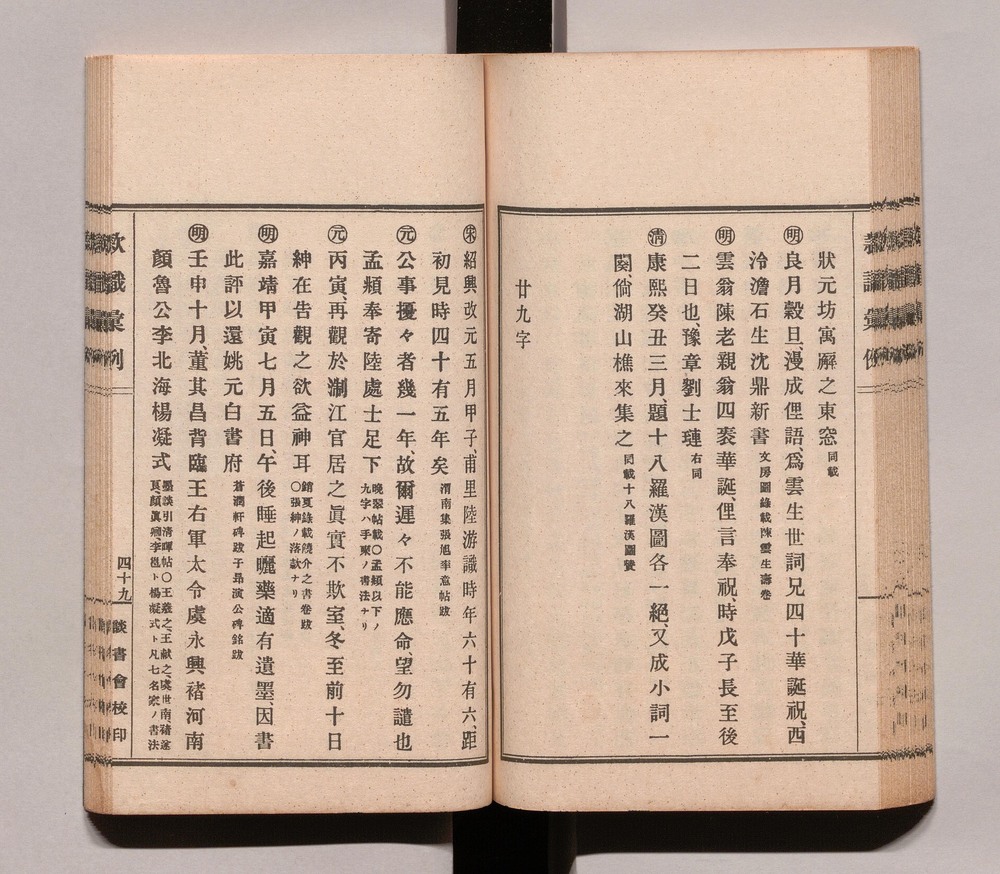 狀元坊寓廨之東窓同載
明良月穀旦、漫成俚語、爲雲生世詞兄四十華誕祝、西
泠澹石生沈鼎新書文房圖錄載陳雲生壽卷
明雲翁陳老親翁四袠華誕、俚言奉祝、時戊子長至後
二日也、豫章劉士璉右同
淸康熙癸丑三月、題十八羅漢圖各一絕、又成小詞一
闋、倘湖山樵來集之同載十八羅漢圖贊
廿九字
宋紹興改元五月甲子、甫里陸游識時年六十有六、距
初見時四十有五年矣渭南集張旭李意帖跋
元公事擾々者幾一年、故爾遲々不能應命、望勿譴也
孟頫奉寄陸處士足下晚翠帖載〇孟頫以下ノ
九字ハ手柬ノ書法ナリ
元丙寅、再觀於淛江官居之眞實不欺室、冬至前十日
紳在告觀之欲益神耳銷夏錄載饒介之書卷跋
〇張紳ノ落款ナリ
明嘉靖甲寅七月五日、午後睡起曬藥適有遺墨、因書
此評以還姚元白書府蒼潤軒碑跋于昻演公碑銘跋
明壬申十月、董其昌背臨王右軍太令虞永興褚河南
顏魯公李北海楊凝式墨談引淸暉帖〇王羲之、王献之、虞世南、褚遂
良、顏眞卿、李邕ト楊凝式ト凡七名家ノ書法
款識彙例
四十九
談書會校印